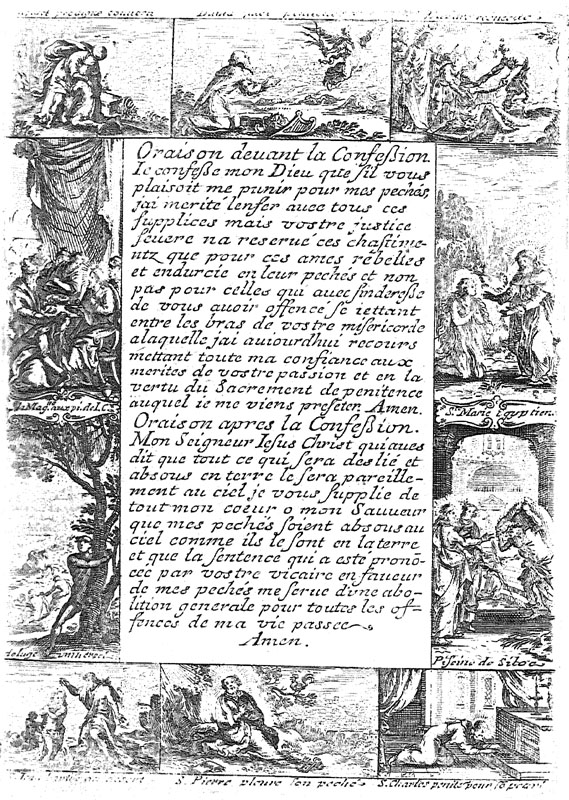 Oraison devant la Confeßion.
Ie confeße mon Dieu que sil vous
plaisoit me punir pour mes pechés,
jai merité lenfer avec tous ces
supplices mais vostre justice
severe na reservé ces chastime-
ntz que pour ces ames rebelles
et endurcie en leur pechés et non
pas pour celles qui avec sindereße
de vous avoir offencé se iettant
entre les bras de vostre misericorde
alaquelle jai auiourdhui recours
mettant toute ma confiance aux
merites de vostre passion et en la
vertu du Sacrement de penitence
auquel ie me viens preseter. Amen.
Oraison apres la Confeßion.
Mon Seigneur Iesus Christ qui aues
dit que tout ce qui sera deslié et
absous en terre le sera pareille-
ment au ciel je vous supplie de
tout mon coeur o mon Sauueur
que mes pechés soient absous au
ciel comme ils le sont en la terre
et que la sentence qui a esté pronō-
cée par vostre vicaire en faueur
de mes pechés me serue d'vne abo-
lition generale pour toutes les of-
fences de ma vie passee
Amen.
S. Marie Egyptien.
Piscine de Siloé
S. Pierre pleure son peché
S. Charles